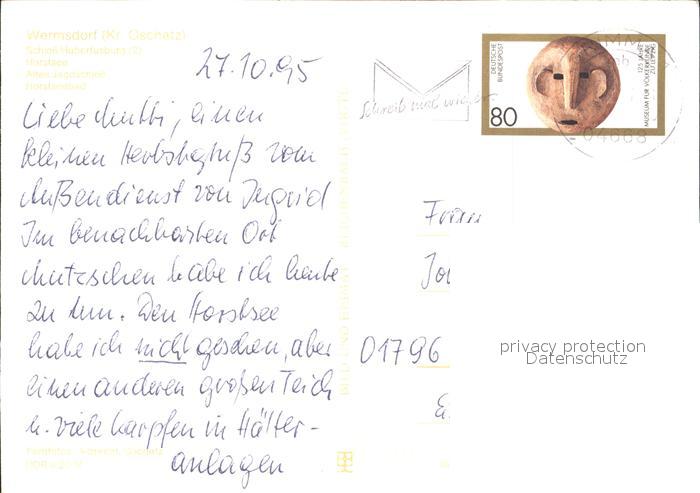 Wermsdorf (Kr. Oschatz)
Schloß Hubertusburg (2)
Horstsee
Altes Jagdschloß
Horstseebad
27.10.95
Liebe Mutti, einen
kleinen Herbstgruß vom
Außendienst von Ingrid
Im benachbarten Ort
Mutzschen habe ich heute
zu tun. Den Horstsee
habe ich nicht gesehen, aber
einen anderen großen Teich
u. viele Karpfen in Hälter-
anlagen
BILD UND HEIMAT REICHENBACH (VOGTL)
Schreib mal wieder
DEUTSCHE
BUNDESPOST
80
125 JAHRE
MUSEUM FÜR VÖLKERKUNDE
ZU LEIPZIG
04668
Frau
01796
privacy protection
Datenschutz